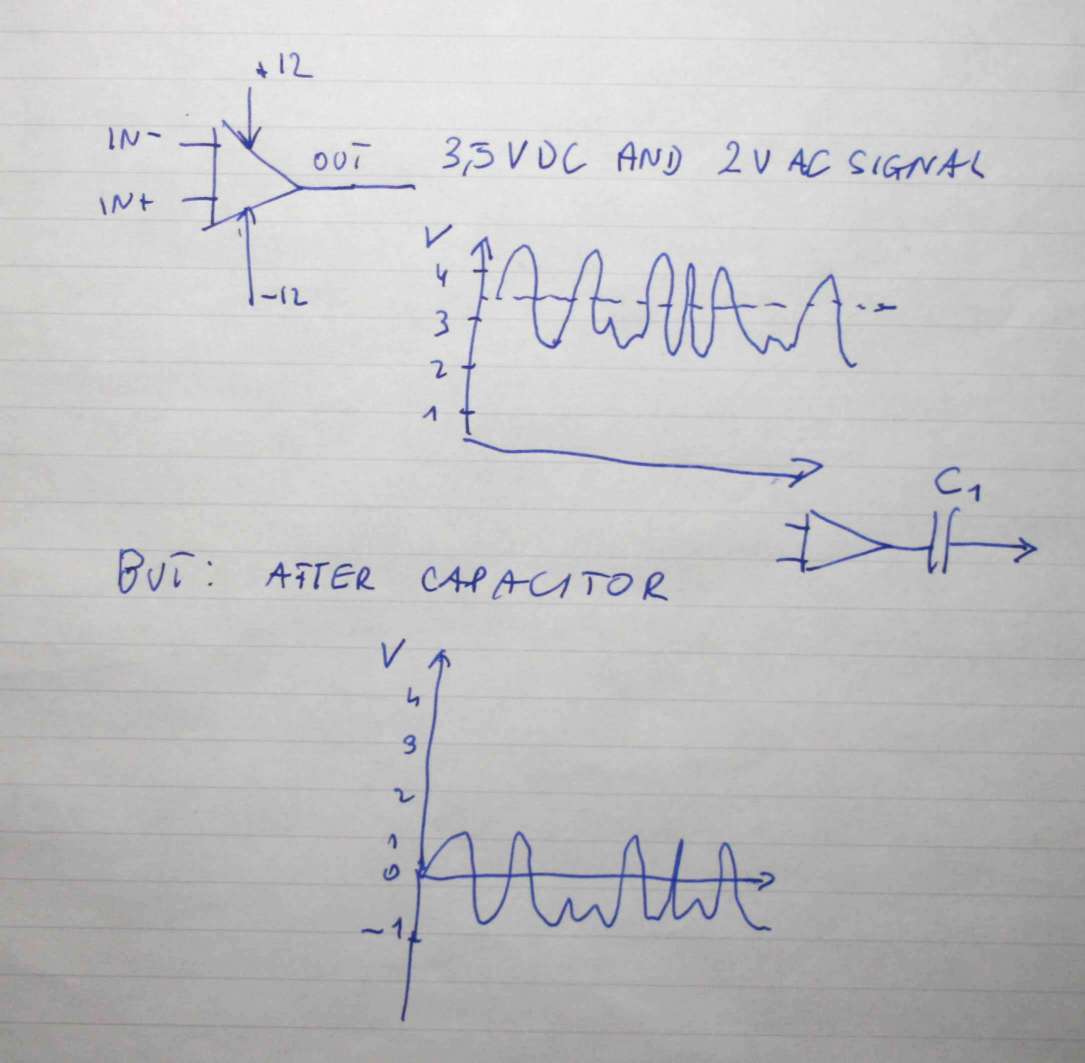 +12
IN-
OUT 3,5V DC AND 2V AC SIGNAL
IN+
-12
V
4
3
2
1
C1
BUT: AFTER CAPACITOR
V
4
3
2
1
0
-1